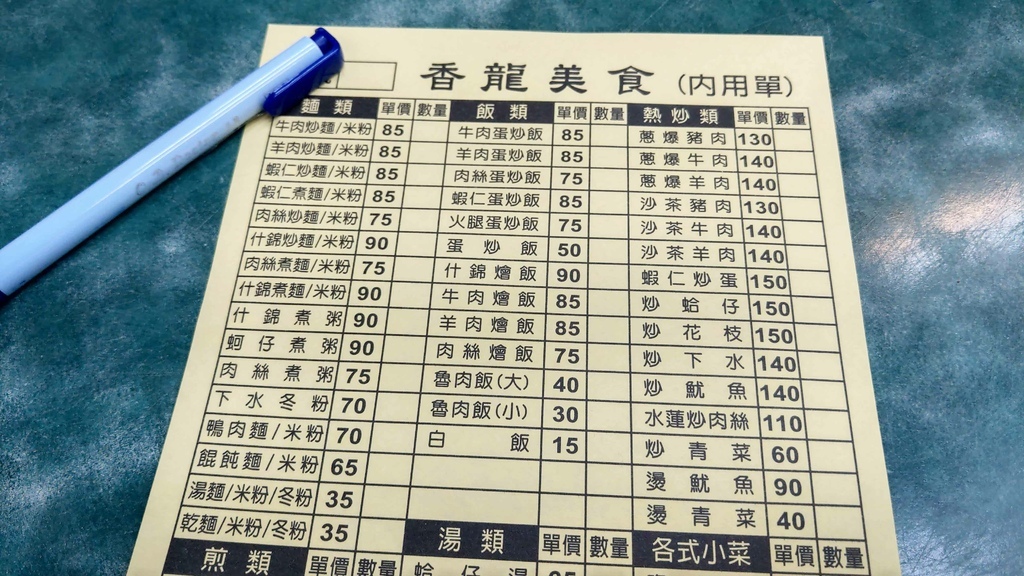 香龍美食 (內用單)
麵類 單價 數量 飯類 單價 數量 熱炒類 單價 數量
牛肉炒麵/米粉 85 牛肉蛋炒飯 85 蔥爆豬肉 130
羊肉炒麵/米粉 85 羊肉蛋炒飯 85 蔥爆牛肉 140
蝦仁炒麵/米粉 85 肉絲蛋炒飯 75 蔥爆羊肉 140
蝦仁煮麵/米粉 85 蝦仁蛋炒飯 85 沙茶豬肉 130
肉絲炒麵/米粉 75 火腿蛋炒飯 75 沙茶牛肉 140
什錦炒麵/米粉 90 蛋炒飯 50 沙茶羊肉 140
肉絲煮麵/米粉 75 什錦燴飯 90 蝦仁炒蛋 150
什錦煮麵/米粉 90 牛肉燴飯 85 炒蛤仔 150
什錦煮粥 90 羊肉燴飯 85 炒花枝 150
蚵仔煮粥 90 肉絲燴飯 75 炒下水 140
肉絲煮粥 75 魯肉飯(大) 40 炒魷魚 140
下水冬粉 70 魯肉飯(小) 30 水蓮炒肉絲 110
鴨肉麵/米粉 70 白飯 15 炒青菜 60
餛飩麵/米粉 65 燙魷魚 90
湯麵/米粉/冬粉 35 燙青菜 40
乾麵/米粉/冬粉 35 湯類 單價 數量 各式小菜 單價 數量
煎類 單價 數量 蛤仔湯